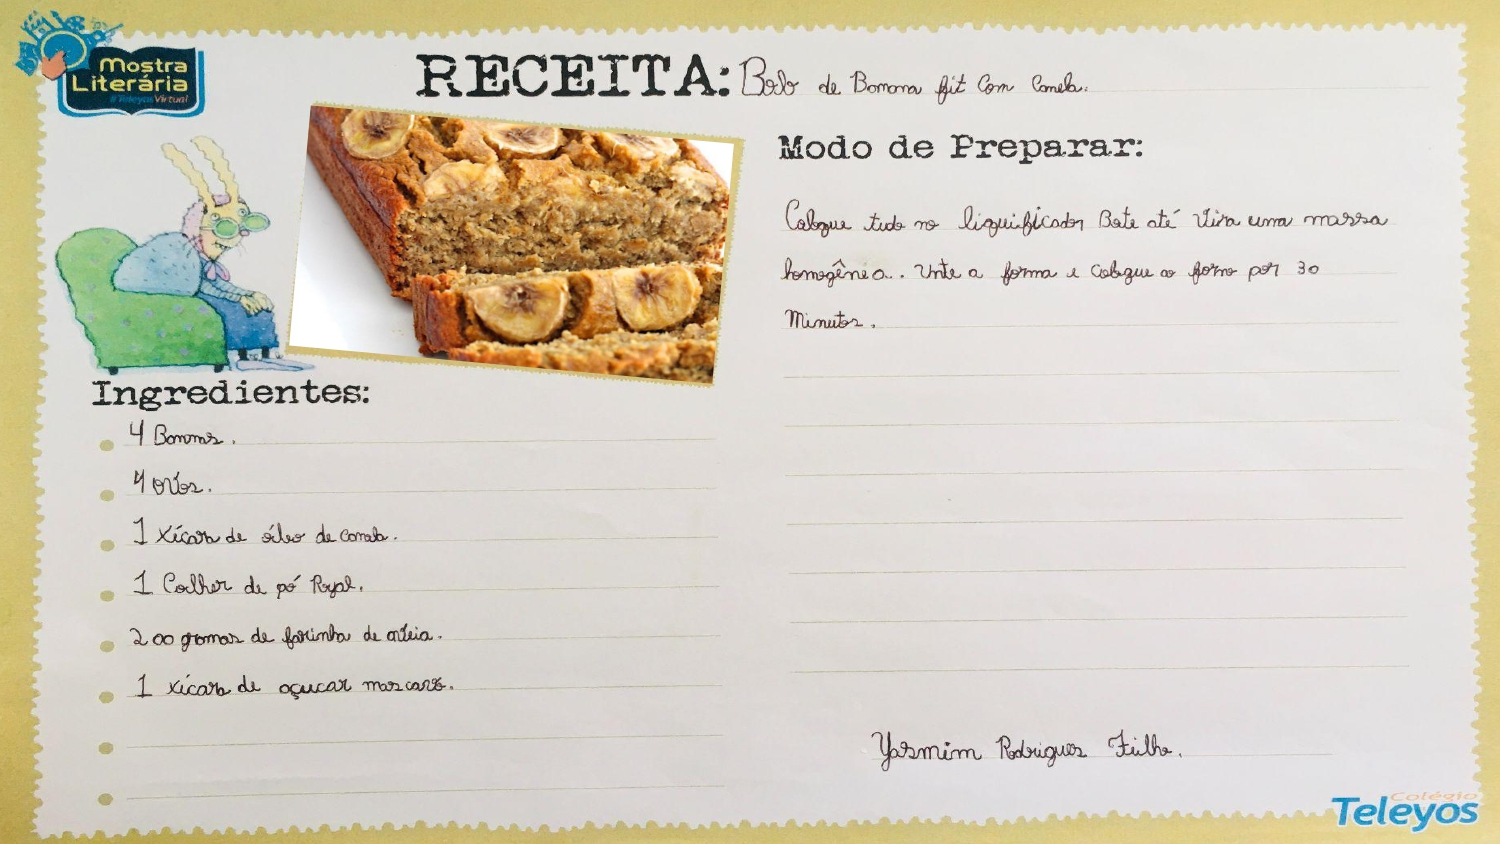 Mostra
Literária
#Teleyos Virtual
RECEITA: Bolo de Banana fit com canela.
Ingredientes:
4 Bananas.
4 ovos.
1 xícara de óleo de canola.
1 Colher de pó Royal.
200 gramas de farinha de aveia.
1 xícara de açucar mascavo.
Modo de Preparar:
Coloque tudo no liquificador Bate até vira uma massa
homogênia.. Unte a forma e coloque ao forno por 30
Minutos.
Yasmim Rodrigues Fialho.
Colégio
Teleyos